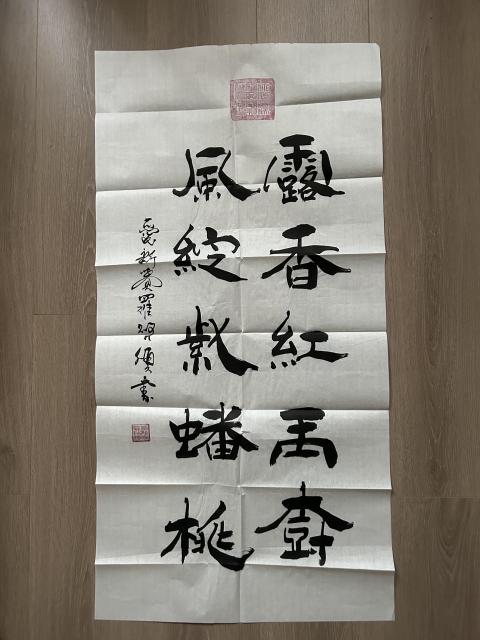 露香紅玉樹
風綻紫蟠桃
愛新覺羅書